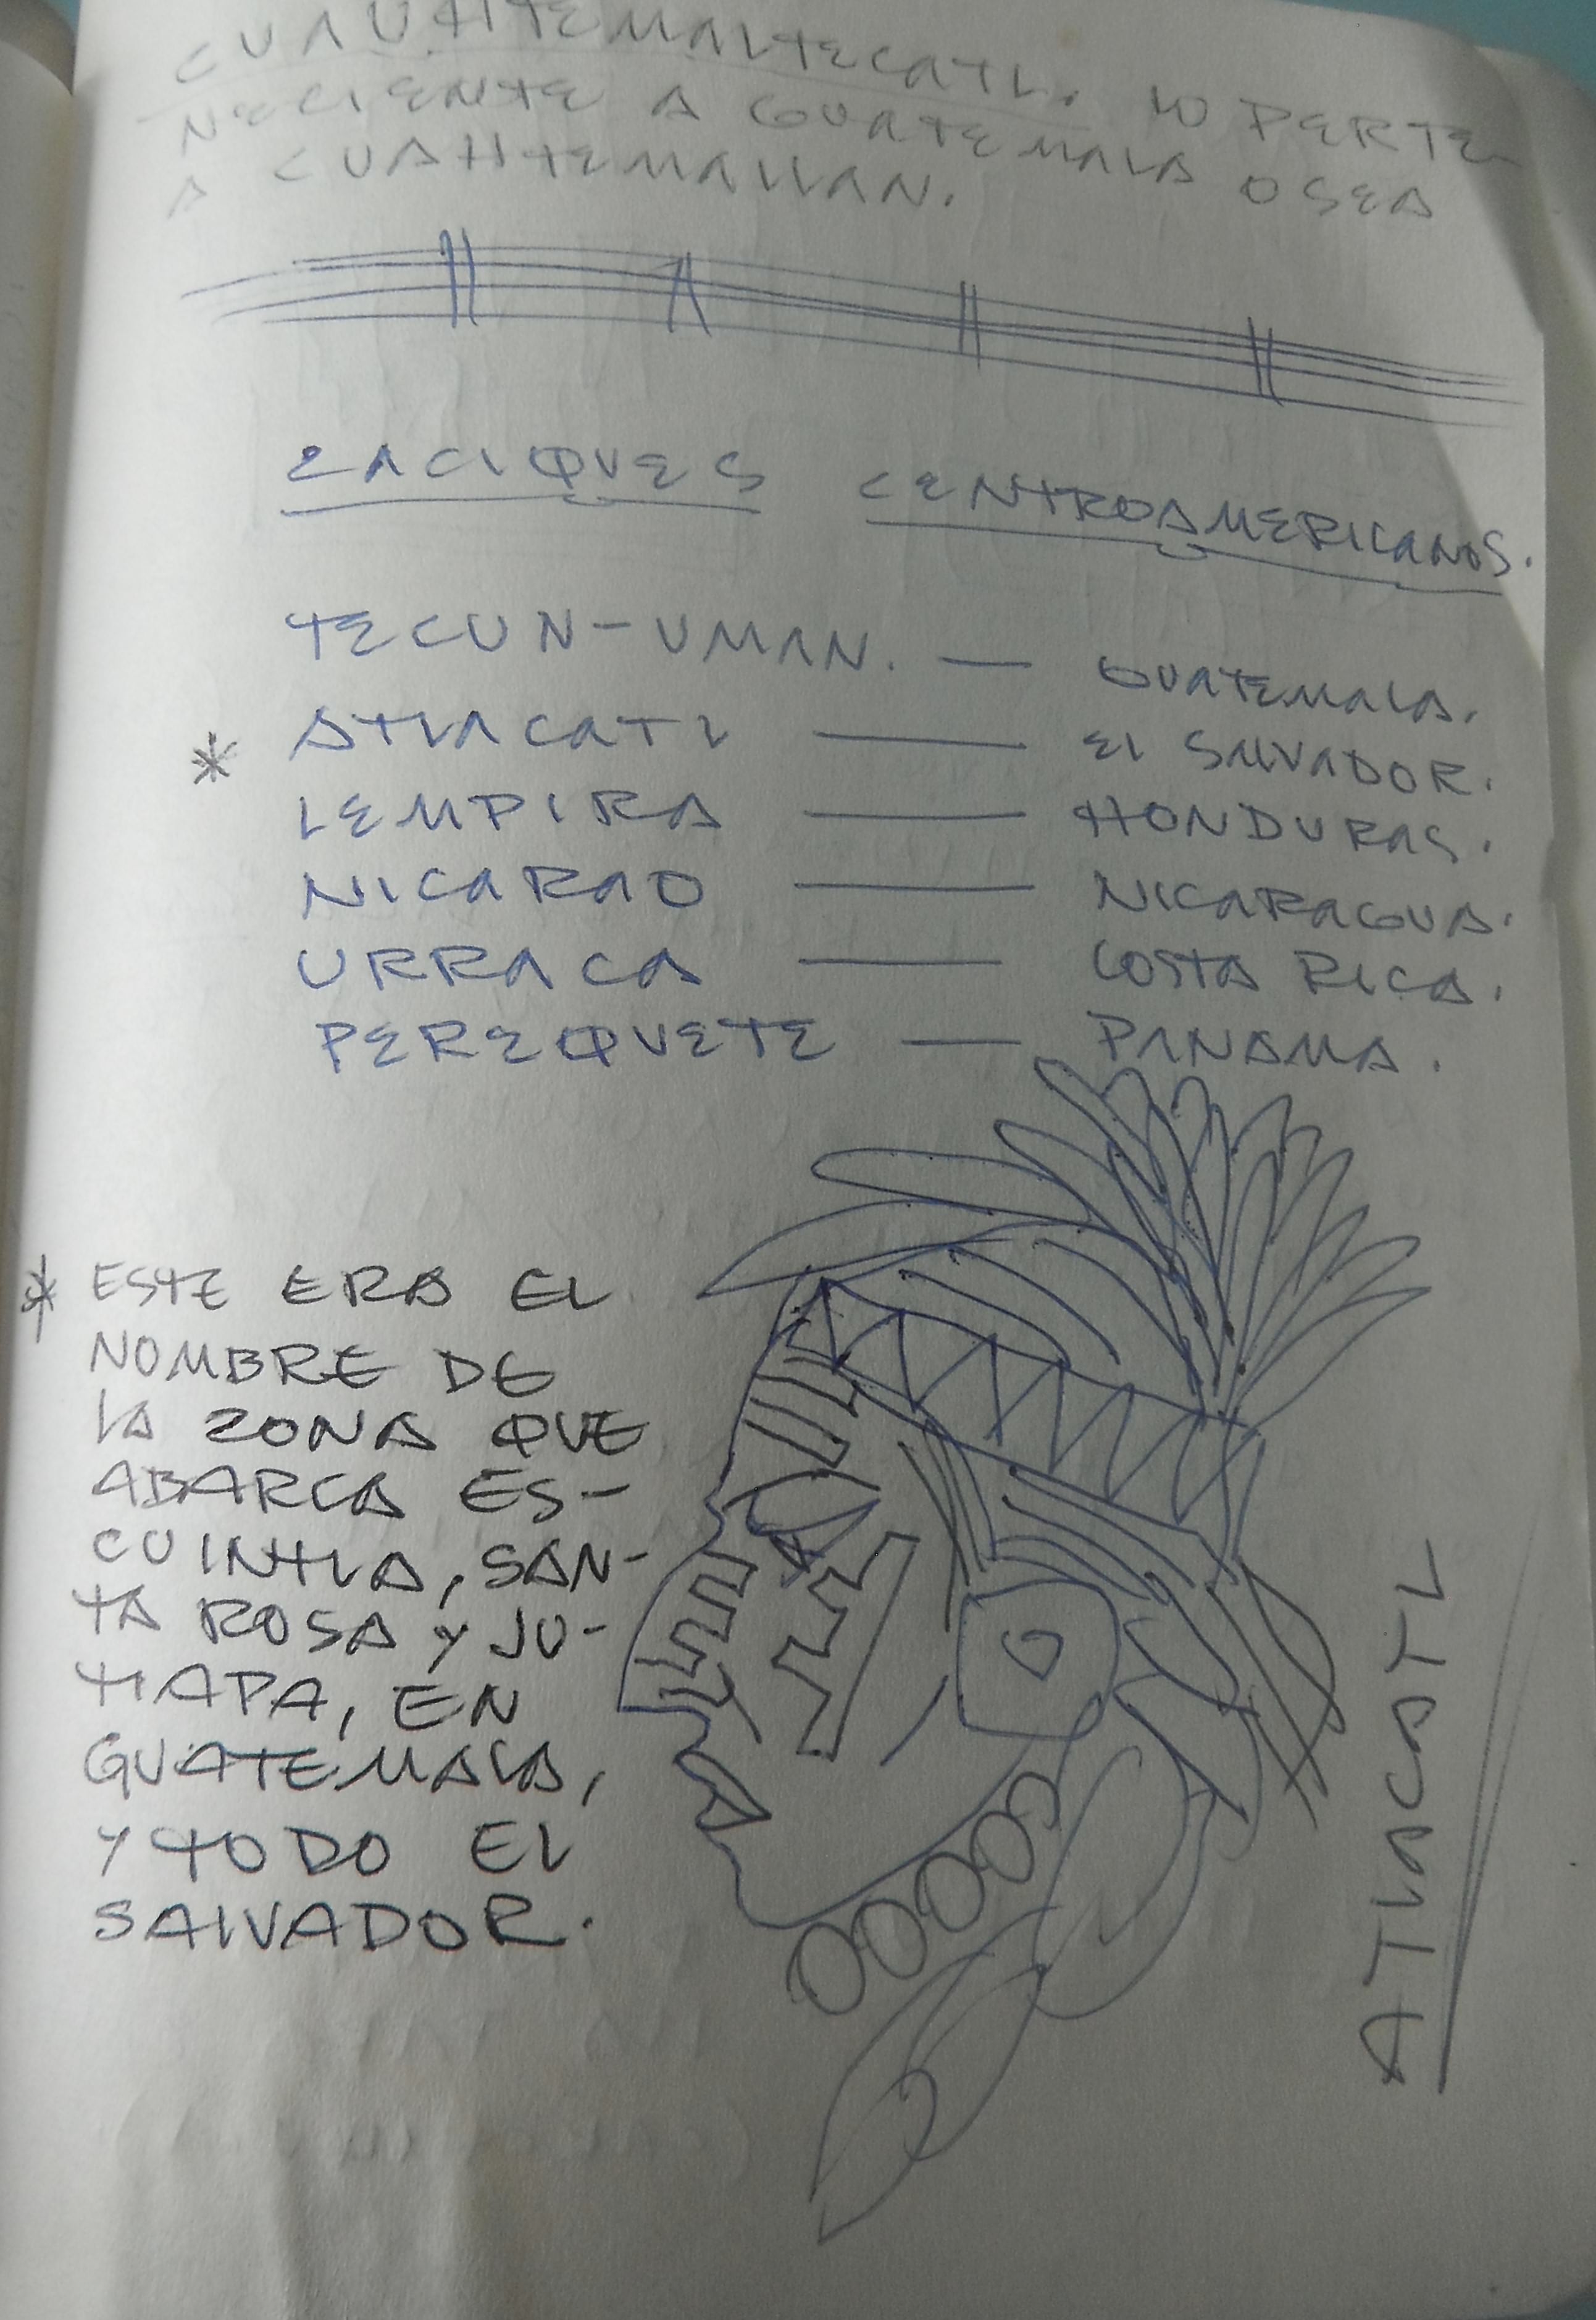 CUAUHTEMALTECATL. LO PERTE
NECIENTE A GUATEMALA O SEA
A CUAHTEMALLAN.
CACIQUES CENTROAMERICANOS.
TECUN-UMAN. — GUATEMALA.
* ATLACATL — EL SALVADOR.
LEMPIRA — HONDURAS.
NICARAO — NICARAGUA.
URRACA — COSTA RICA.
PEREQUETE — PANAMA.
* ESTE ERA EL
NOMBRE DE
LA ZONA QUE
ABARCA ES-
CUINTLA, SAN-
TA ROSA Y JU-
TIAPA, EN
GUATEMALA,
Y TODO EL
SALVADOR.
ATLACATL